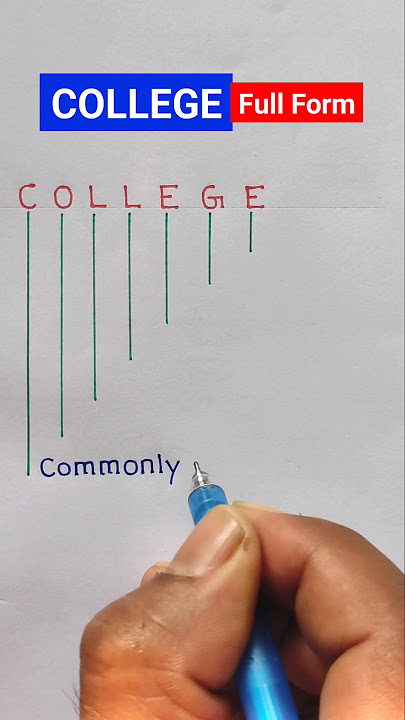 COLLEGE Full Form
C O L L E G E
Commonly